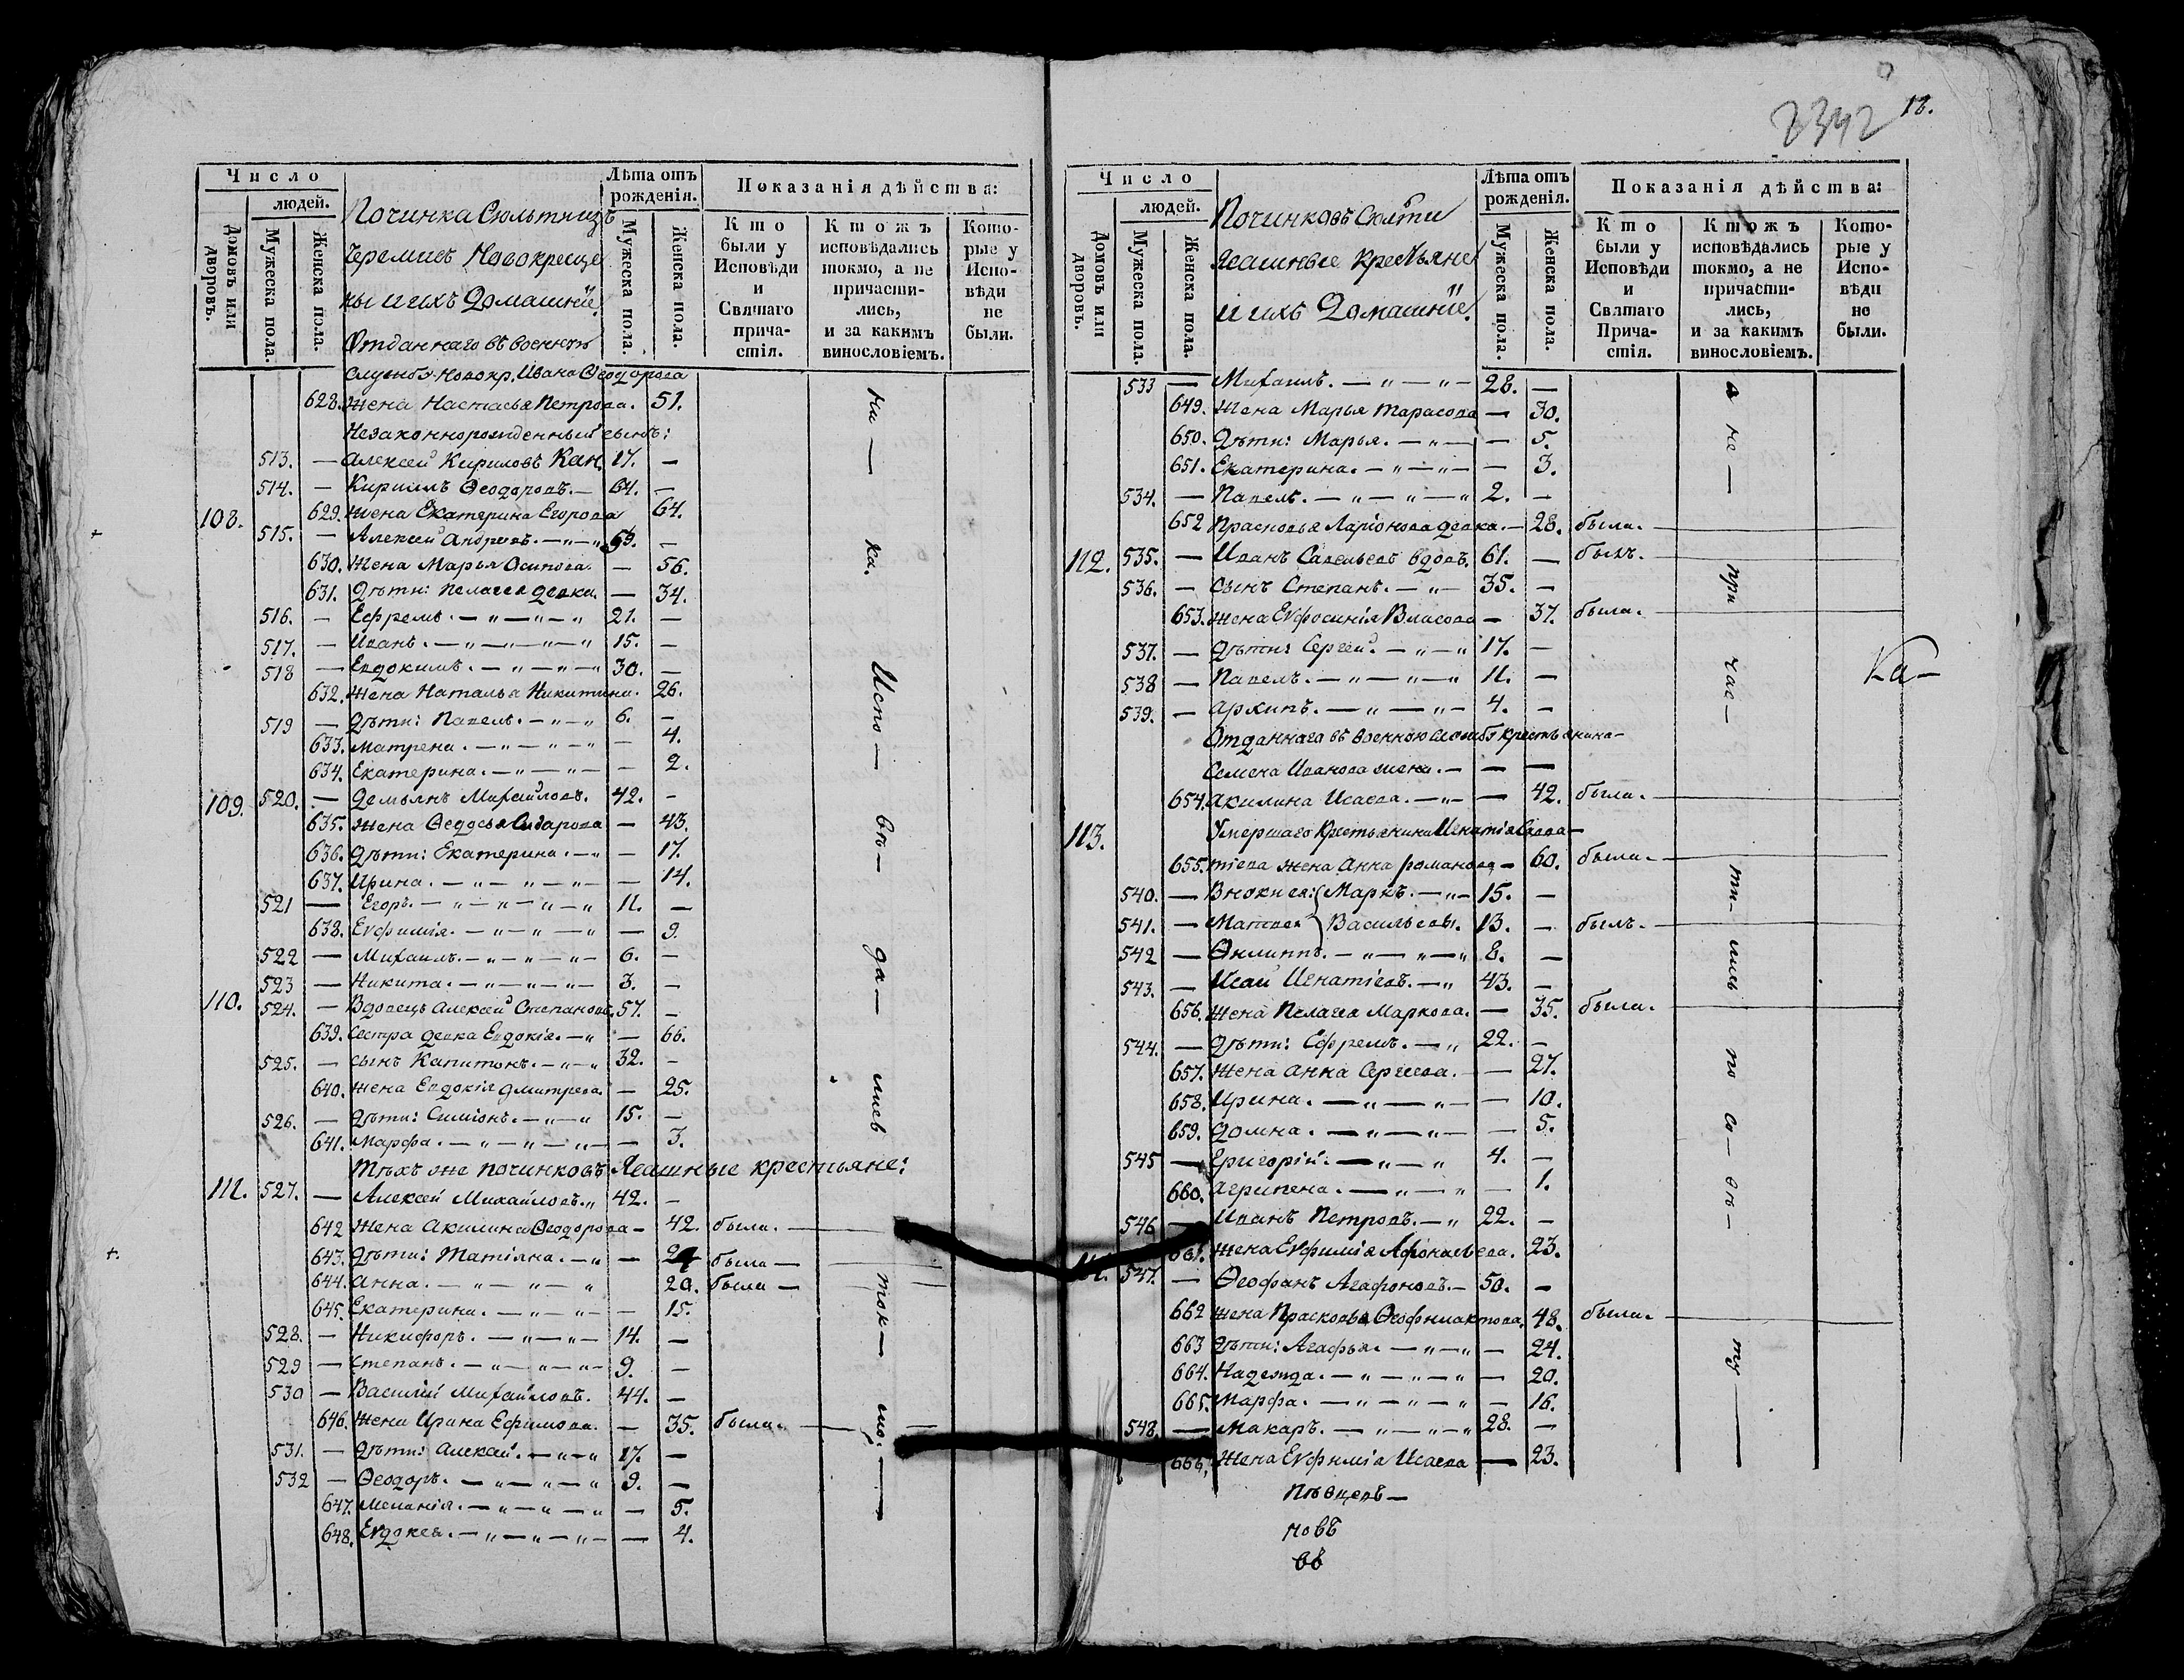 Число
людей.
Домовъ или дворовъ.
Мужеска пола.
Женска пола.
Починка Сюльтницъ
Черемисъ Новокреще
ны и ихъ Домашніе.
Отданнаго въ военную
службу новокр. Ивана Ѳеодорова
Лѣта отъ рожденія.
Мужеска пола.
Женска пола.
Показанія дѣйства:
Кто были у Исповѣди и Святаго причастія.
Ктожъ исповѣдались токмо, а не причастились, и за какимъ винословіемъ.
Которые у Исповѣди не были.
628. жена Настасья Петрова. 51.
Незаконнорожденный сынъ:
513. — Алексей Кириловъ 17. —
514. — Кириллъ Ѳеодоровъ. — 64. —
629. жена Екатерина Егорова 64.
108. 515. — Алексей Андреевъ. — " — " 59. —
630. жена Марья Осипова. — 56.
631. дѣти: Пелагея девка. — 34.
516. — Ефремъ. — " — " — " 21. —
517. — Иванъ. — " — " — " — " 15. —
518 — Евдокимъ. — " — " — " 30. —
632. жена Наталья Никитина. 26.
519 — дѣти: Павелъ. — " — " 6. —
633. Матрена. — " — " — " — 4.
634. Екатерина. — " — " — — 2.
109. 520. — Демьянъ Михайловъ. 42. —
635. жена Ѳедосья Сидарова — 43.
636. дѣти: Екатерина. — " — 17.
637. Ирина. — " — " — " — — 14.
521 — Егоръ. — " — " — " — " 11. —
638. Евфимія. — " — " — " — 9.
522 — Михаилъ. — " — " — " — 6. —
523 — Никита. — " — " — " — 3. —
110. 524. — Вдовецъ Алексей Степановъ. 57. —
639. Сестра девка Евдокія. — " — 66.
525. — сынъ Капитонъ. — " — " 32. —
640. жена Евдокія Дмитрева. — 25.
526. — дѣти: Симіонъ. — " — " 15. —
641. Марфа. — " — " — " — — 3.
Тѣхъ же починковъ Ясашные крестьяне:
111. 527. — Алексей Михайловъ. " 42. —
642 жена Акилина Ѳеодорова — 42. была. —
643. дѣти: Татіана. — " — 24 была —
644. Анна. — " — " — " 20. была —
645. Екатерина. — " — " — — 15.
528. — Никифоръ. — " — " — 14. —
529 — Степанъ. — " — " — " — 9. —
530 — Василий Михайловъ. 44. —
646. жена Ирина Ефимова. — 35. была. —
531. — дѣти: Алексей. — " — " 17. —
532 — Ѳеодоръ. — " — " — " 9. —
647. Меланія. — " — " — " — 5.
648. Евдокея. — " — " — " — — 4.
ни — ка. Испо — въ — да — лись ток — мо. —
2342
18.
Число
людей.
Домовъ или дворовъ.
Мужеска пола.
Женска пола.
Починковъ Сюлти
Ясашные Крестьяне
и ихъ Домашніе.
Лѣта отъ рожденія.
Мужеска пола.
Женска пола.
Показанія дѣйства:
Кто были у Исповѣди и Святаго Причастія.
Ктожъ исповѣдались токмо, а не причастились, и за какимъ винословіемъ.
Которые у Исповѣди не были.
533 — Михаилъ. — " — " — 28. —
649. жена Марья Тарасова — 30.
650. дѣти: Марья. — " — — 5.
651. Екатерина. — " — " — — 3.
534. — Павелъ. — " — " — " 2. —
652 Прасковья Ларіонова девка. — 28. была. —
112. 535. — Иванъ Савельевъ вдовъ. 61. — былъ. —
536. — сынъ Степанъ. — " — 35. —
653. жена Евфросинія Власова — 37. была. —
537. — дѣти: Сергей. — " — " 17. —
538 — Павелъ. — " — " — " 11. —
539. — Архипъ. — " — " — 4. —
Отданнаго въ военною службу крестьянина —
Семена Иванова жена. — — —
654. Акилина Исаева. — " — — 42. была. —
113. Умершаго Крестьянина Игнатія Савва —
655. тіева жена Анна Романова — 60. была. —
540. — Внокися: Маркъ. — " — 15. —
541. — Матвей } Васильевы. 13. — былъ. —
542 — Филиппъ. — " — " — " 8. —
543. — Исай Игнатіевъ. — " 43. —
656. жена Пелагея Маркова. — 35. была. —
544. — дѣти: Ефремъ. — " 22. —
657. жена Анна Сергеева. — — 27.
658. Ирина. — " — " — — 10.
659. Домна. — " — " — — 5.
545 — Григорій. — " — " 4. —
660. Агрипена. — " — " — 1.
546 — Иванъ Петровъ. — " 22. —
661. жена Евфимія Афонасьева. 23.
547. — Ѳеофанъ Агафоновъ. — 50. —
662 жена Прасковья Ѳеофилактова. 48. была. —
663 дѣти: Агафья. — " — " — 24.
664. Надежда. — " — " — " — 20.
665. Марфа. — " — " — " — 16.
548. — Макаръ. — " — " — " 28. —
666. жена Евфимія Исаева — 23.
а не — при час — ти — лись по со — вѣ — ту —
Ка —
новъ